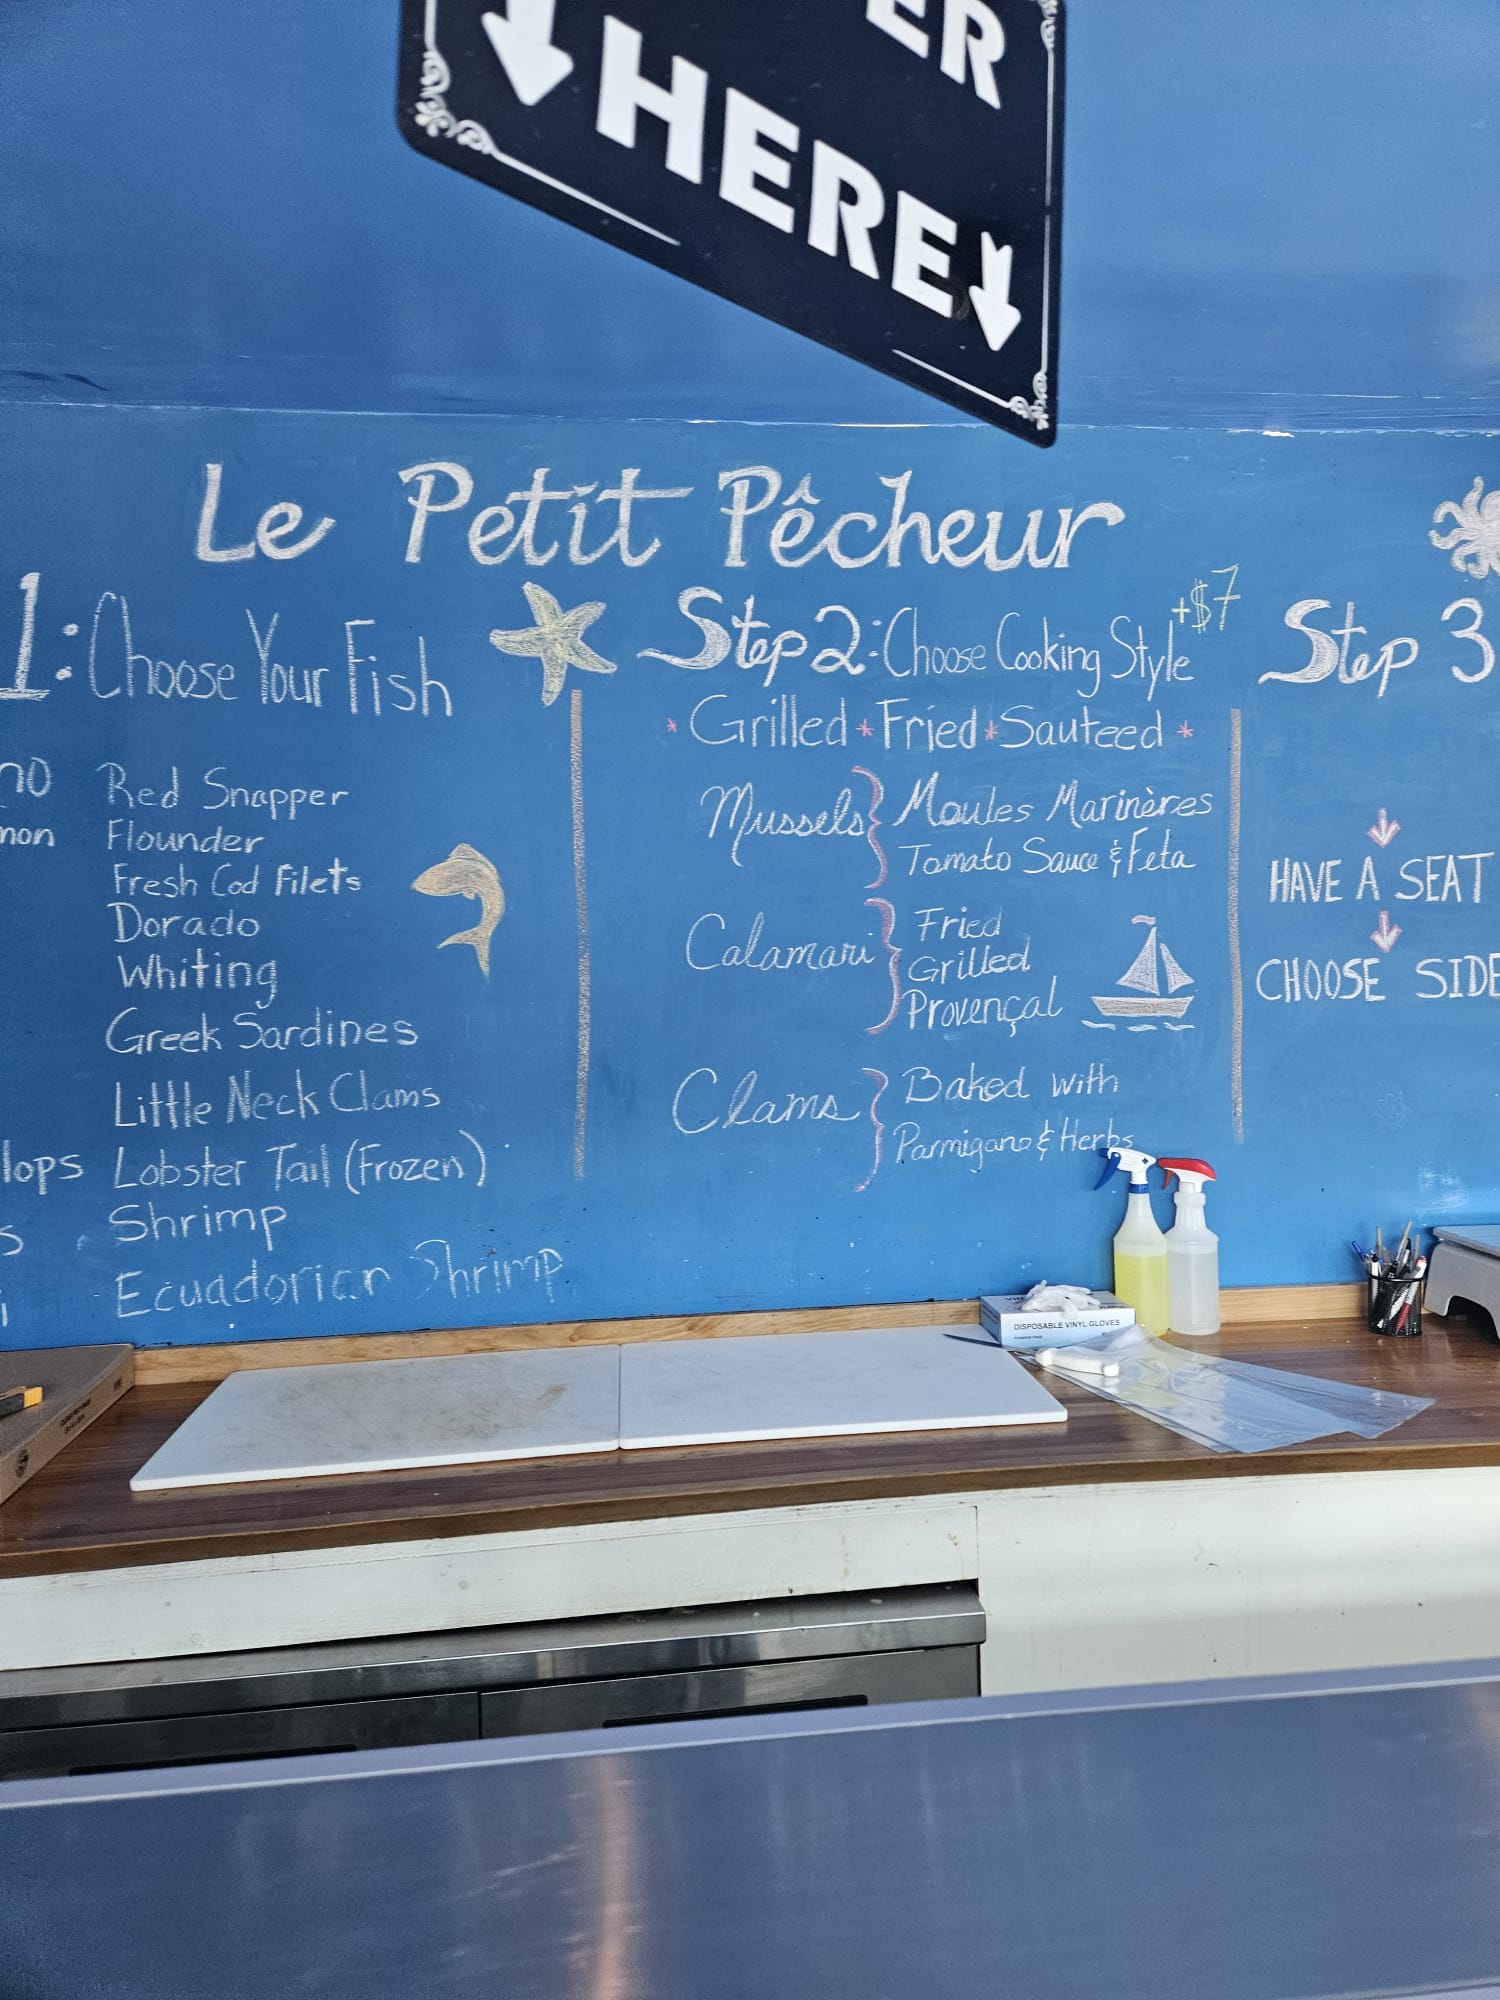 ER
HERE
Le Petit Pêcheur
1: Choose Your Fish
Red Snapper
Flounder
Fresh Cod Filets
Dorado
Whiting
Greek Sardines
Little Neck Clams
lops Lobster Tail (Frozen)
Shrimp
Ecuadorian Shrimp
Step 2: Choose Cooking Style +$7
* Grilled * Fried * Sauteed *
Mussels } Moules Marinères
Tomato Sauce & Feta
Calamari } Fried
Grilled
Provençal
Clams } Baked with
Parmigano & Herbs
Step 3
HAVE A SEAT
CHOOSE SIDE
DISPOSABLE VINYL GLOVES